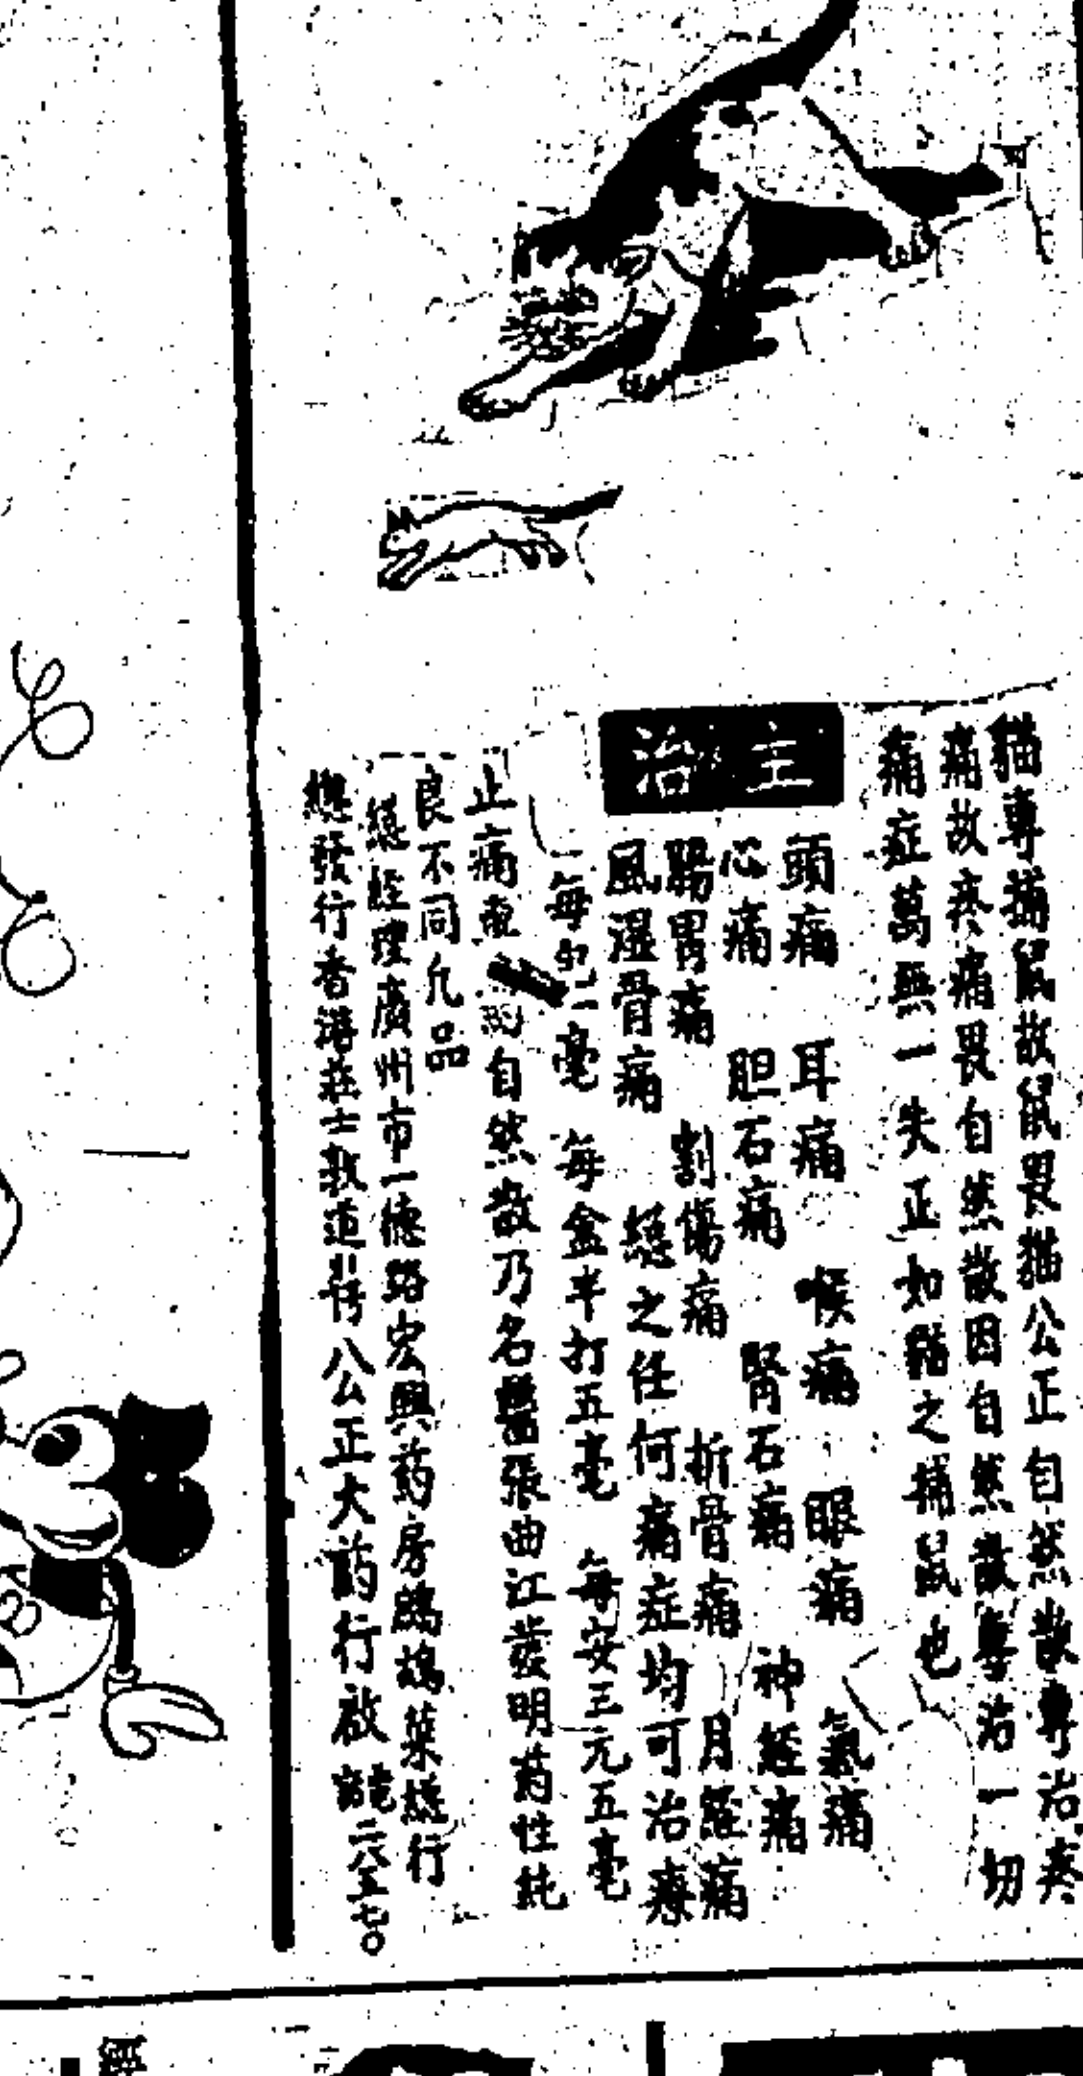 貓專捕鼠故鼠畏貓公正自然散專治疼
痛故疼痛畏自然散因自然散專治一切
痛症萬無一失正如貓之捕鼠也
主治
頭痛 耳痛 喉痛 眼痛 氣痛
心痛 胆石痛 腎石痛 神經痛
腸胃痛 割傷痛 折骨痛 月經痛
風湿骨痛 總之任何痛症均可治療
每包二毫 每盒半打五毫 每安士元五毫
止痛 自然散乃名醫張曲江發明葯性純
良不同凡品
總經理廣州市一德路宏興葯房鷓鴣菜經行
總發行香港莊士敦道 公正大葯行啟